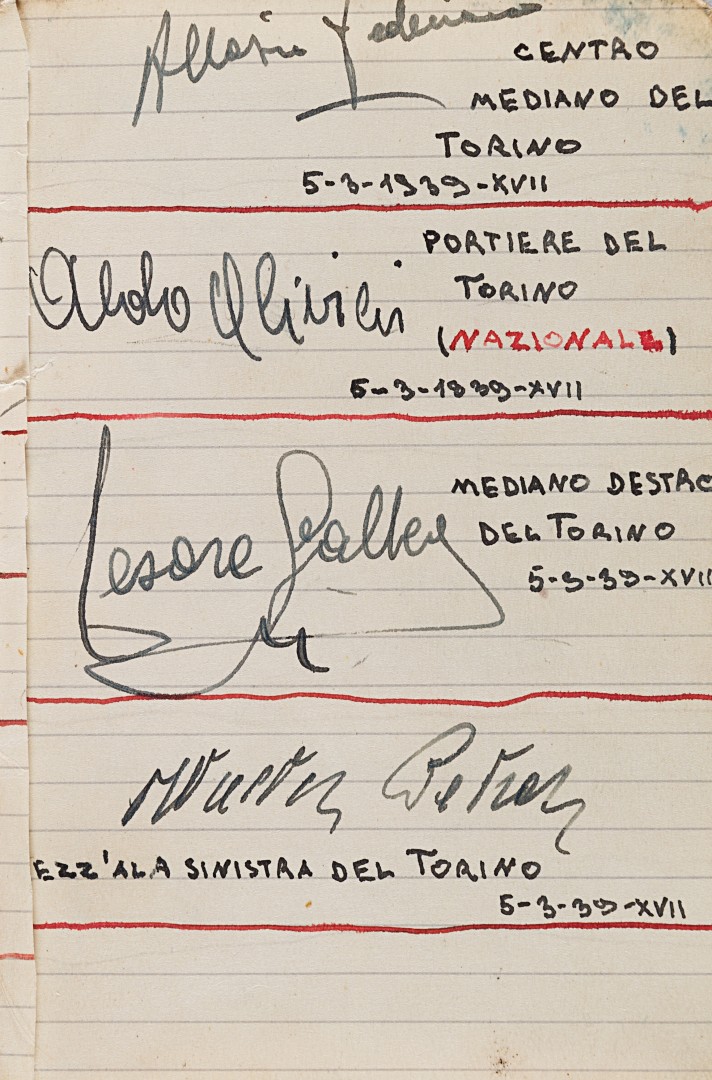 Allasio Federico
CENTRO
MEDIANO DEL
TORINO
5-3-1939-XVII
Aldo Olivieri
PORTIERE DEL
TORINO
(NAZIONALE)
5-3-1939-XVII
Cesare Gallea
MEDIANO DESTRO
DEL TORINO
5-3-39-XVII
Walter Petron
EZZ'ALA SINISTRA DEL TORINO
5-3-39-XVII